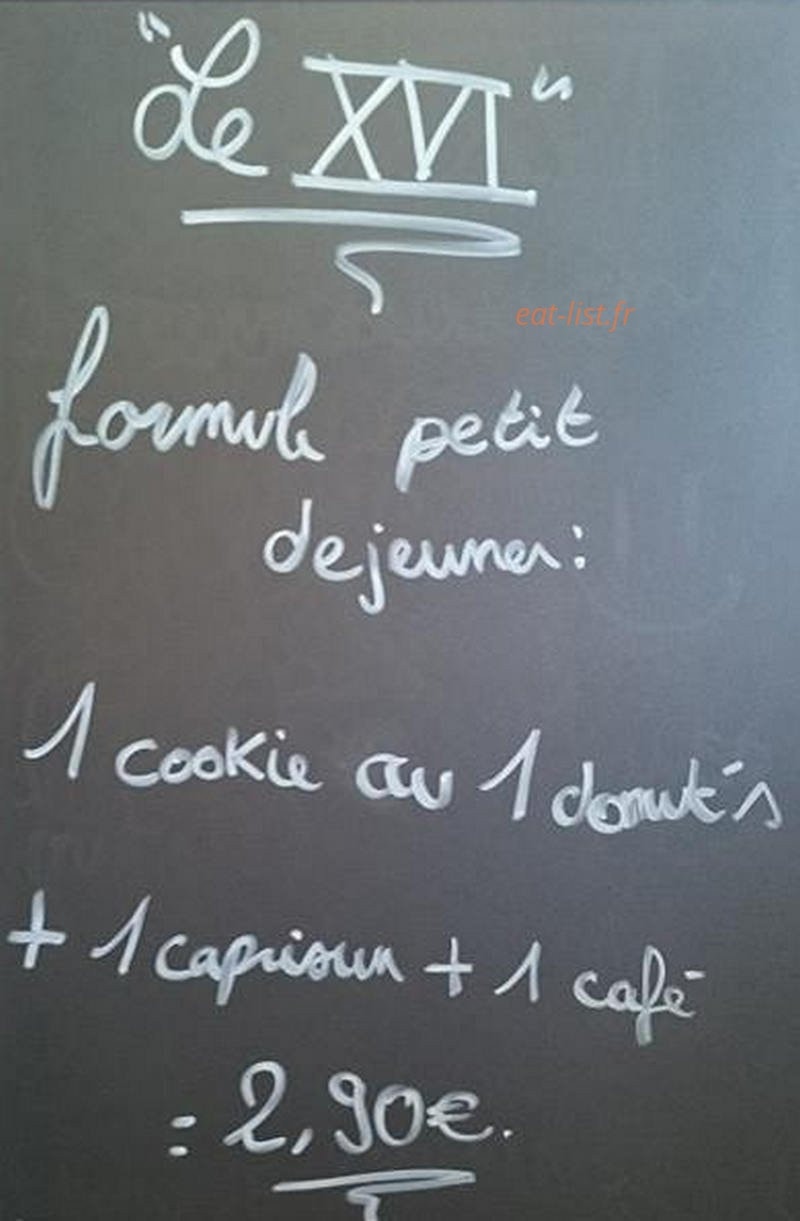 "Le XVI"
eat-list.fr
formule petit
dejeuner:
1 cookie ou 1 donut's
+ 1 caprisun + 1 café
= 2,90€.